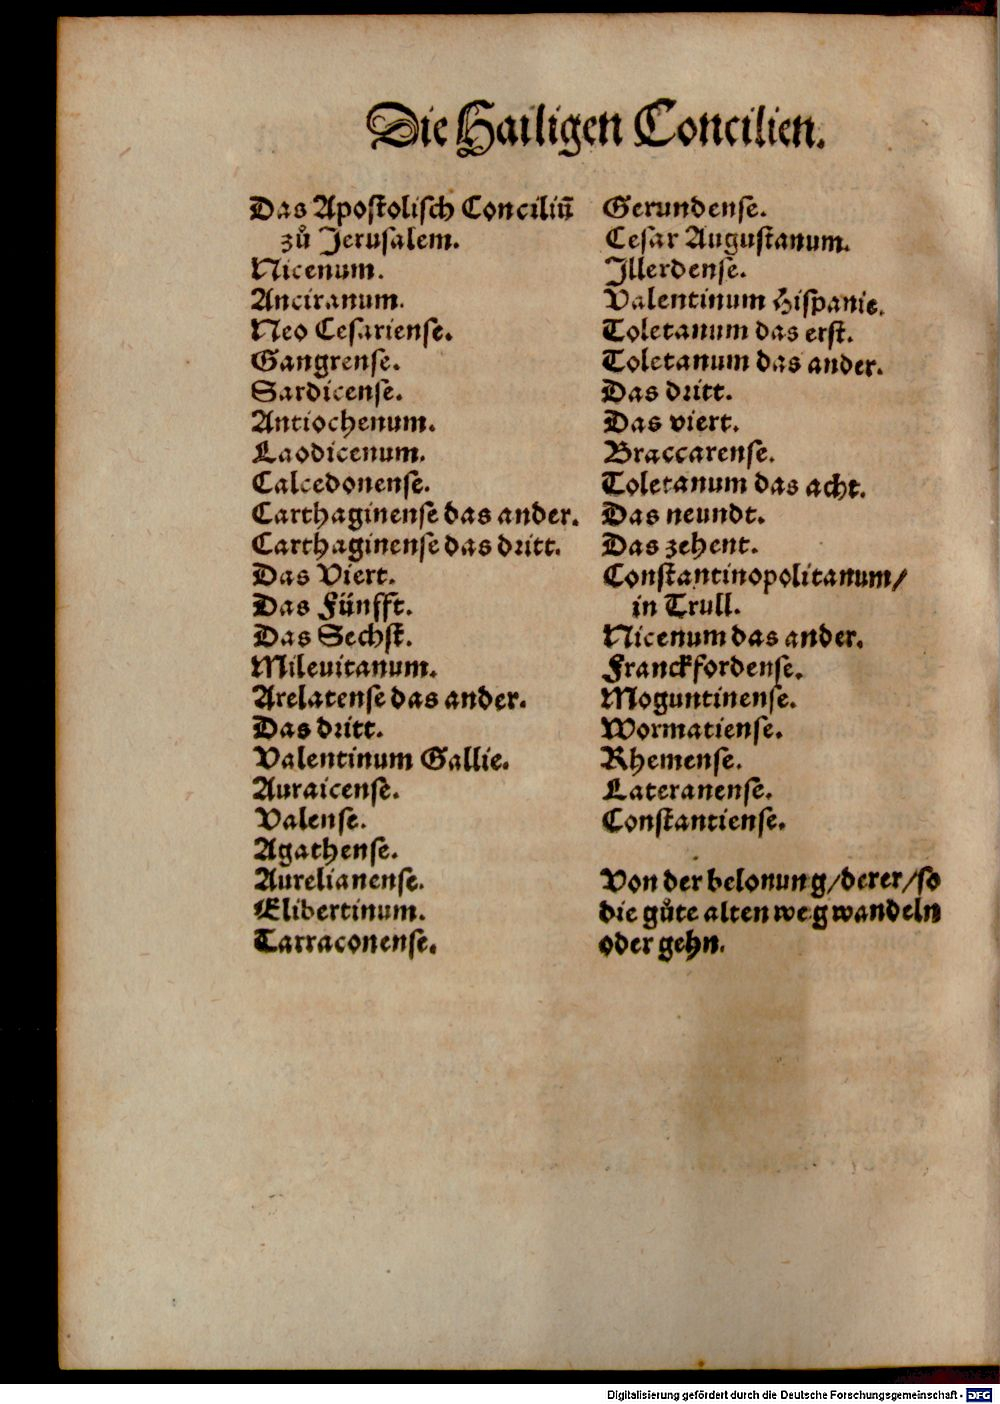 Die Hailigen Concilien.
Das Apostolisch Conciliū
zů Jerusalem.
Nicenum.
Anciranum.
Neo Cesariense.
Gangrense.
Sardicense.
Antiochenum.
Laodicenum.
Calcedonense.
Carthaginense das ander.
Carthaginense das dritt.
Das Viert.
Das Fünfft.
Das Sechst.
Mileuitanum.
Arelatense das ander.
Das dritt.
Valentinum Gallie.
Auraicense.
Valense.
Agathense.
Aurelianense.
Elibertinum.
Tarraconense.
Gerundense.
Cesar Augustanum.
Illerdense.
Valentinum Hispanie.
Toletanum das erst.
Toletanum das ander.
Das dritt.
Das viert.
Braccarense.
Toletanum das acht.
Das neundt.
Das zehent.
Constantinopolitanum/
in Trull.
Nicenum das ander.
Franckfordense.
Moguntinense.
Wormatiense.
Rhemense.
Lateranense.
Constantiense.
Von der belonung/derer/so
die gůte alten weg wandeln
oder gehn.
Digitalisierung gefördert durch die Deutsche Forschungsgemeinschaft - DFG